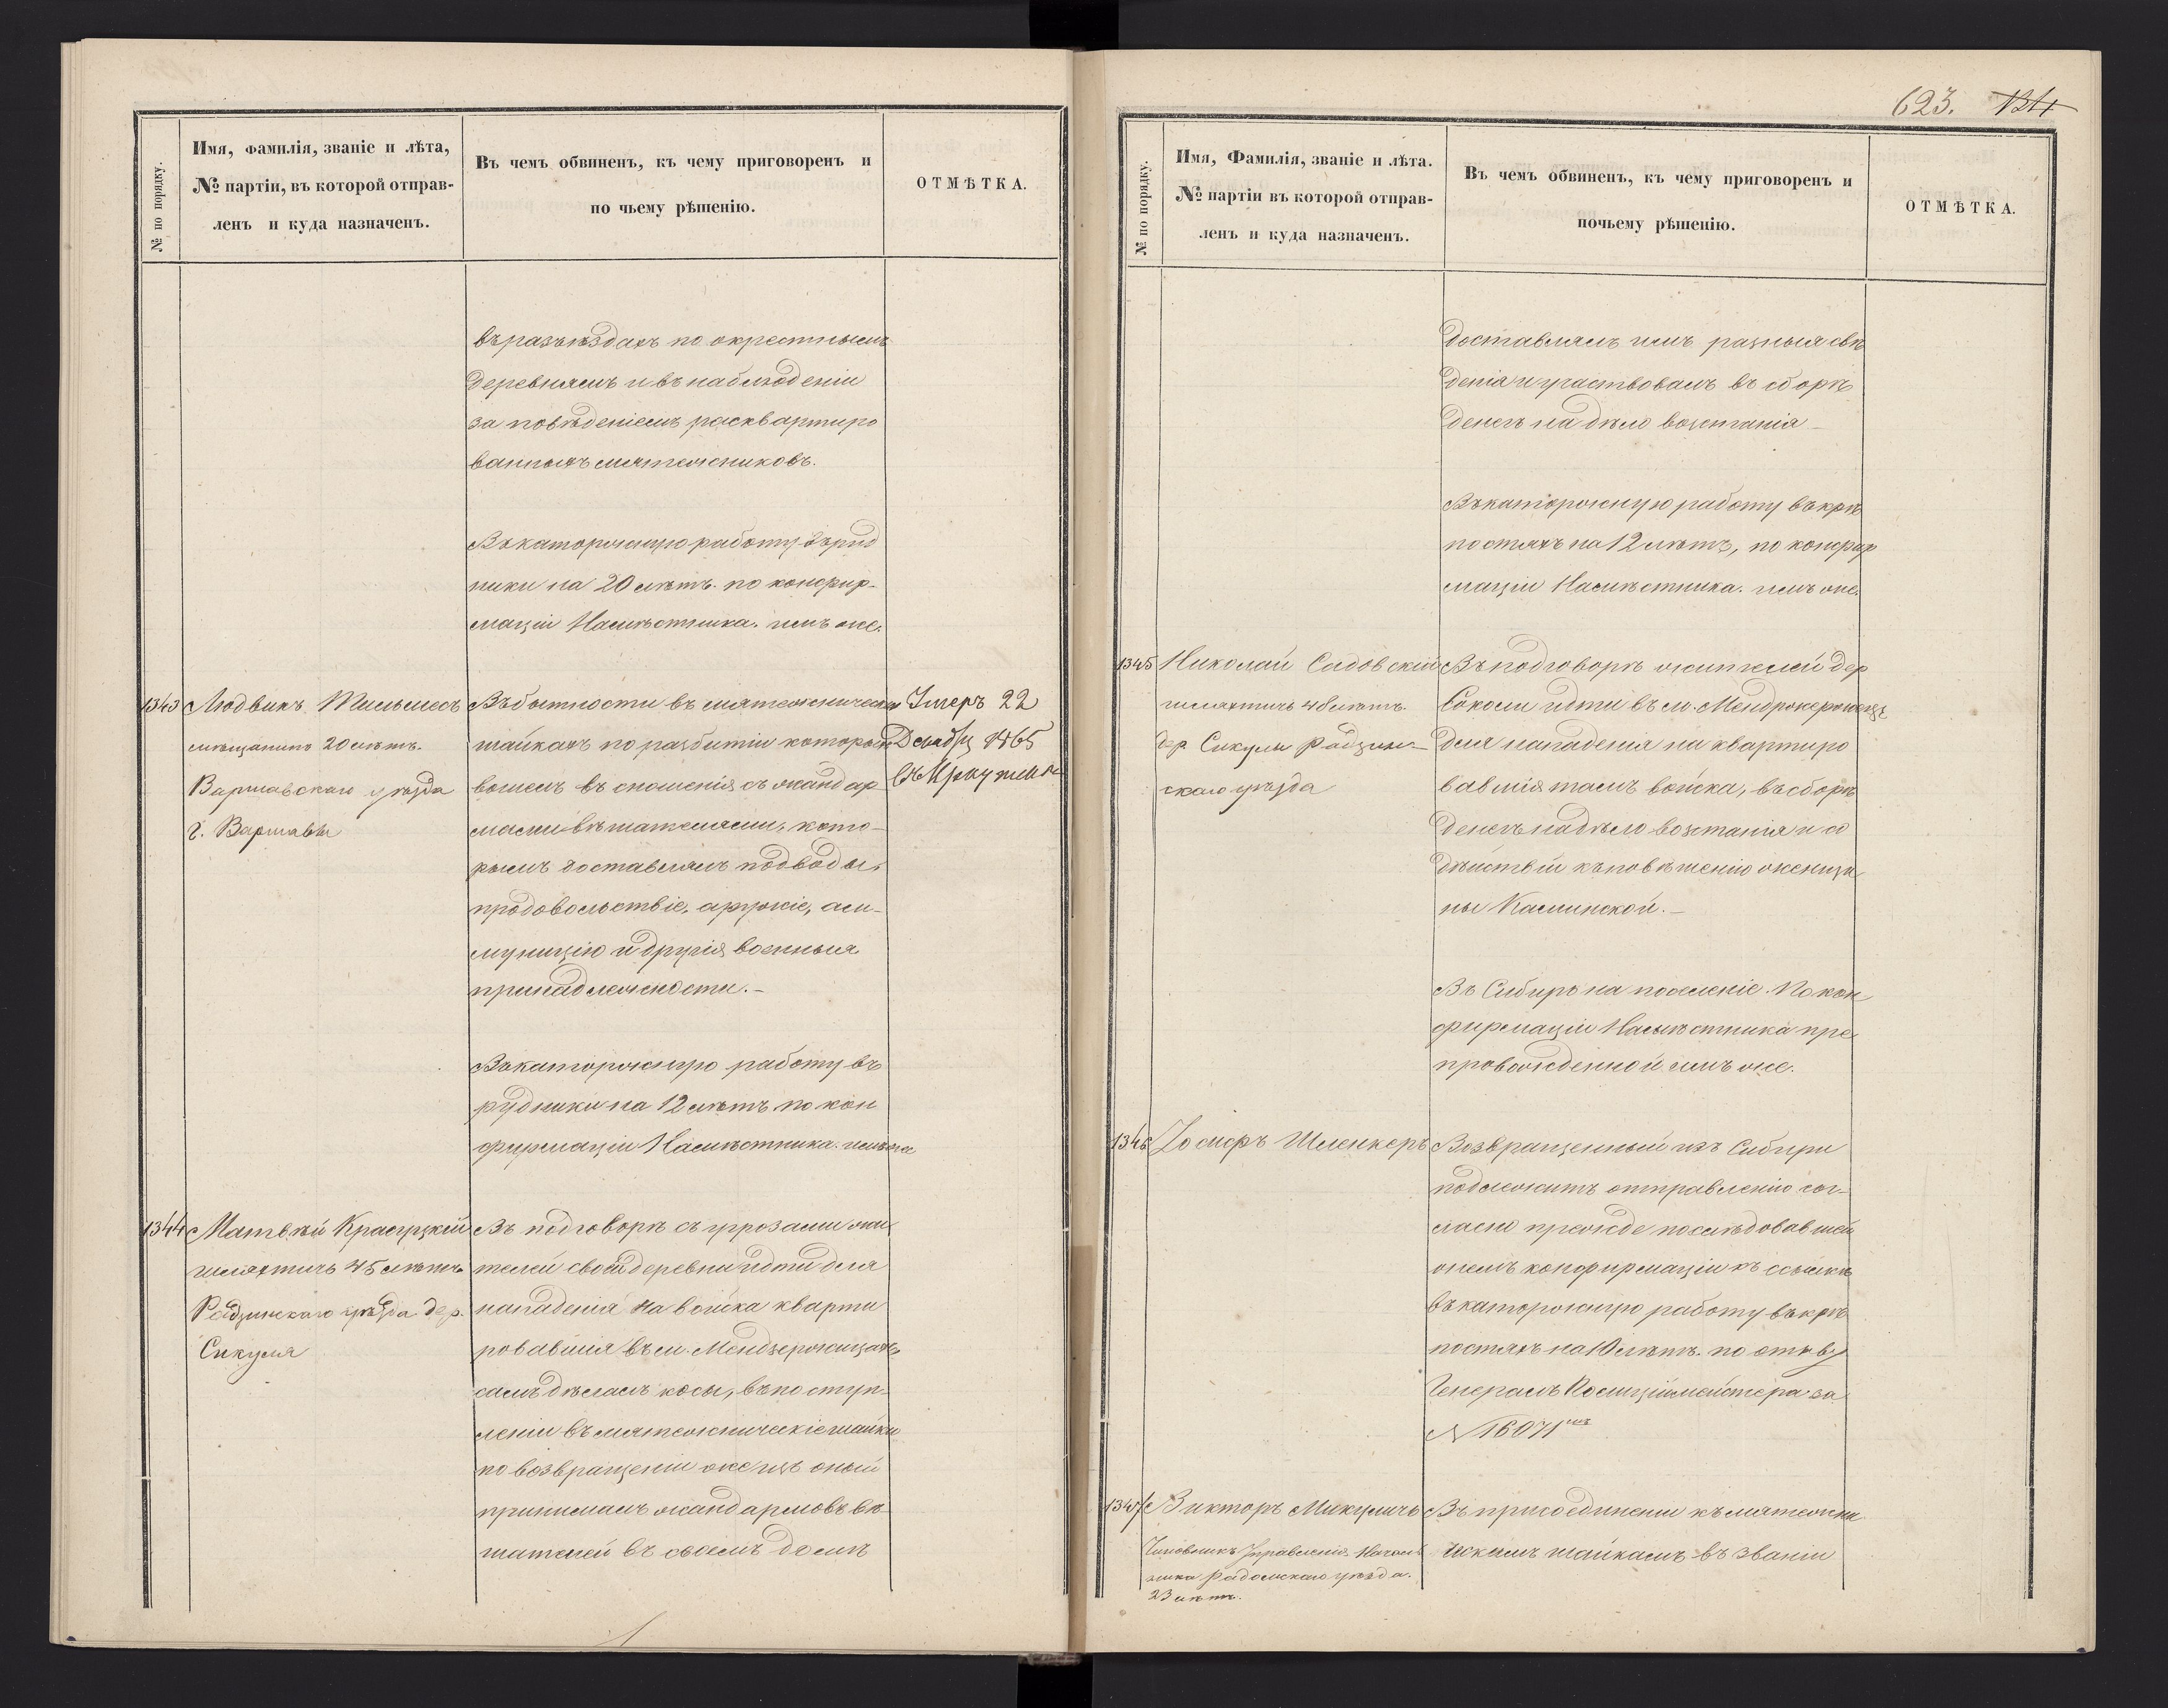 № по порядку.
Имя, фамилія, званіе и лѣта,
№ партіи, въ которой отправ-
ленъ и куда назначенъ.
Въ чемъ обвиненъ, къ чему приговоренъ и
по чьему рѣшенію.
ОТМѢТКА.
въ разъѣздахъ по окрестнымъ
деревнямъ и въ наблюденіи
за поведеніемъ расквартиро
ванныхъ мятежниковъ.
Въ каторжную работу въ руд
ники на 20 лѣтъ. по конфир-
маціи Намѣстника. имъ же.
1343
Людвикъ
мѣщанинъ 20 лѣтъ.
Варшавскаго уѣзда
г. Варшавы
Въ бытности въ мятежническихъ
шайкахъ по разбитіи которыхъ
вошелъ въ сношенія съ жандар
мами вѣшателями, кото-
рымъ доставлялъ подводы,
продовольствіе, аружіе, ам-
муницію и другія военныя
принадлежности.-
Въ каторжную работу въ
рудники на 12 лѣтъ. по кон
фирмаціи Намѣстника. имъ же
Умеръ 22
Декабря 1865
въ Иркутскѣ
1344
Матвѣй Красуцкій
шляхтичъ 45 лѣтъ
Радзинскаго уѣзда дер.
Сикуля
Въ подговорѣ съ угрозами жи
телей своей деревни идти для
нападенія на войска кварти
ровавшія въ м. Мендзержицахъ
самъ дѣлалъ косы, въ поступ-
леніи въ мятежническіе шайки
по возвращеніи же изъ оной
принималъ жандармовъ вѣ-
шателей въ своемъ домѣ
623. 134
№ по порядку.
Имя, Фамилія, званіе и лѣта.
№ партіи въ которой отправ-
ленъ и куда назначенъ.
Въ чемъ обвиненъ, къ чему приговоренъ и
почьему рѣшенію.
ОТМѢТКА.
доставлялъ имъ разныя свѣ
денія и участвовалъ въ сборѣ
денегъ на дѣло возстанія -
Въ каторжную работу въ крѣ
постяхъ на 12 лѣтъ, по конфир
маціи Намѣстника. имъ же.
1345
Николай Садовскій
шляхтичъ 48 лѣтъ.
дер. Сикули Радзин-
скаго уѣзда
Въ подговорѣ жителей дер
идти въ м.
для нападенія на квартиро
вавшія тамъ войска, въ сборѣ
денегъ на дѣло возстанія и со
дѣйствіи къ повѣшенію женщи
ны Каминской.-
Въ Сибирь на поселеніе. По кон
фирмаціи Намѣстника пре
провожденной имъ же.
1346
Іосифъ Шленкеръ
Возвращенный изъ Сибири
подлежитъ отправленію сог-
ласно прежде послѣдовавшей
о немъ конфирмаціи къ ссылкѣ
въ каторжную работу въ крѣ
постяхъ на 10 лѣтъ. по отзыву
Генералъ Полиціймейстера за
№ 16071
1347
Викторъ Микуличъ
Чиновникъ Управленія Началь
ника Радомскаго уѣзда.
23 лѣтъ.
Въ присоединеніи къ мятежни
ческимъ шайкамъ въ званіи